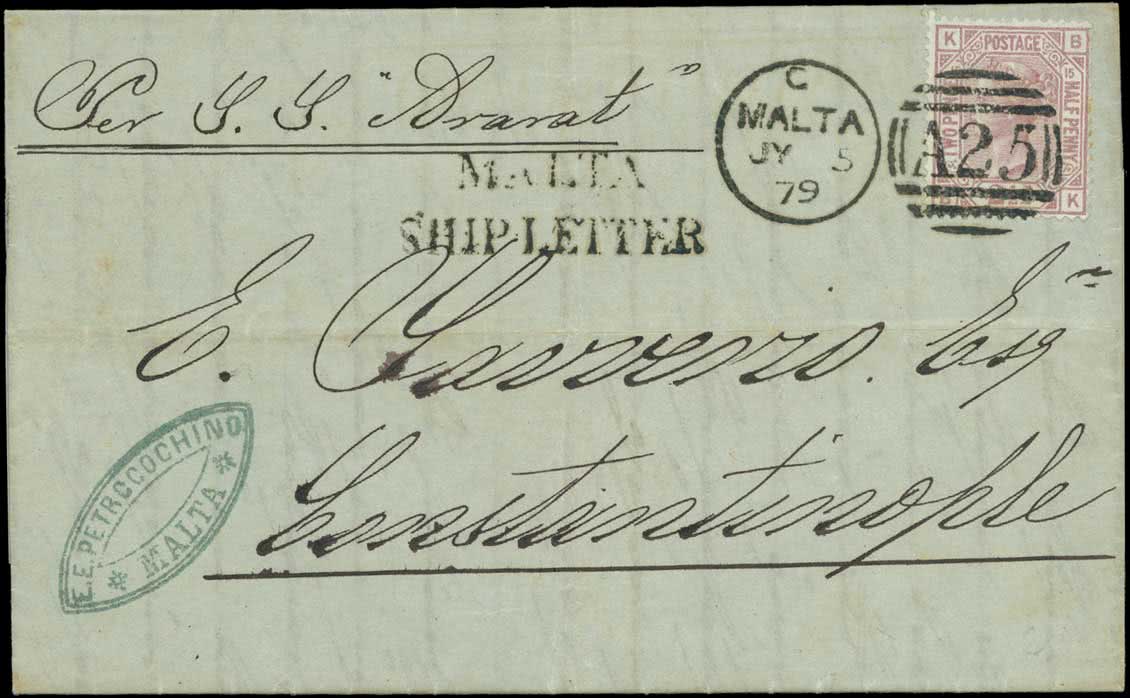 Per S. S. "Ararat"
MALTA
SHIP-LETTER
C
MALTA
JY 5
79
A25
K POSTAGE B
15
HALF PENNY
K
E. Esqr
Constantinople
E. E. PETROCOCHINO
* MALTA *